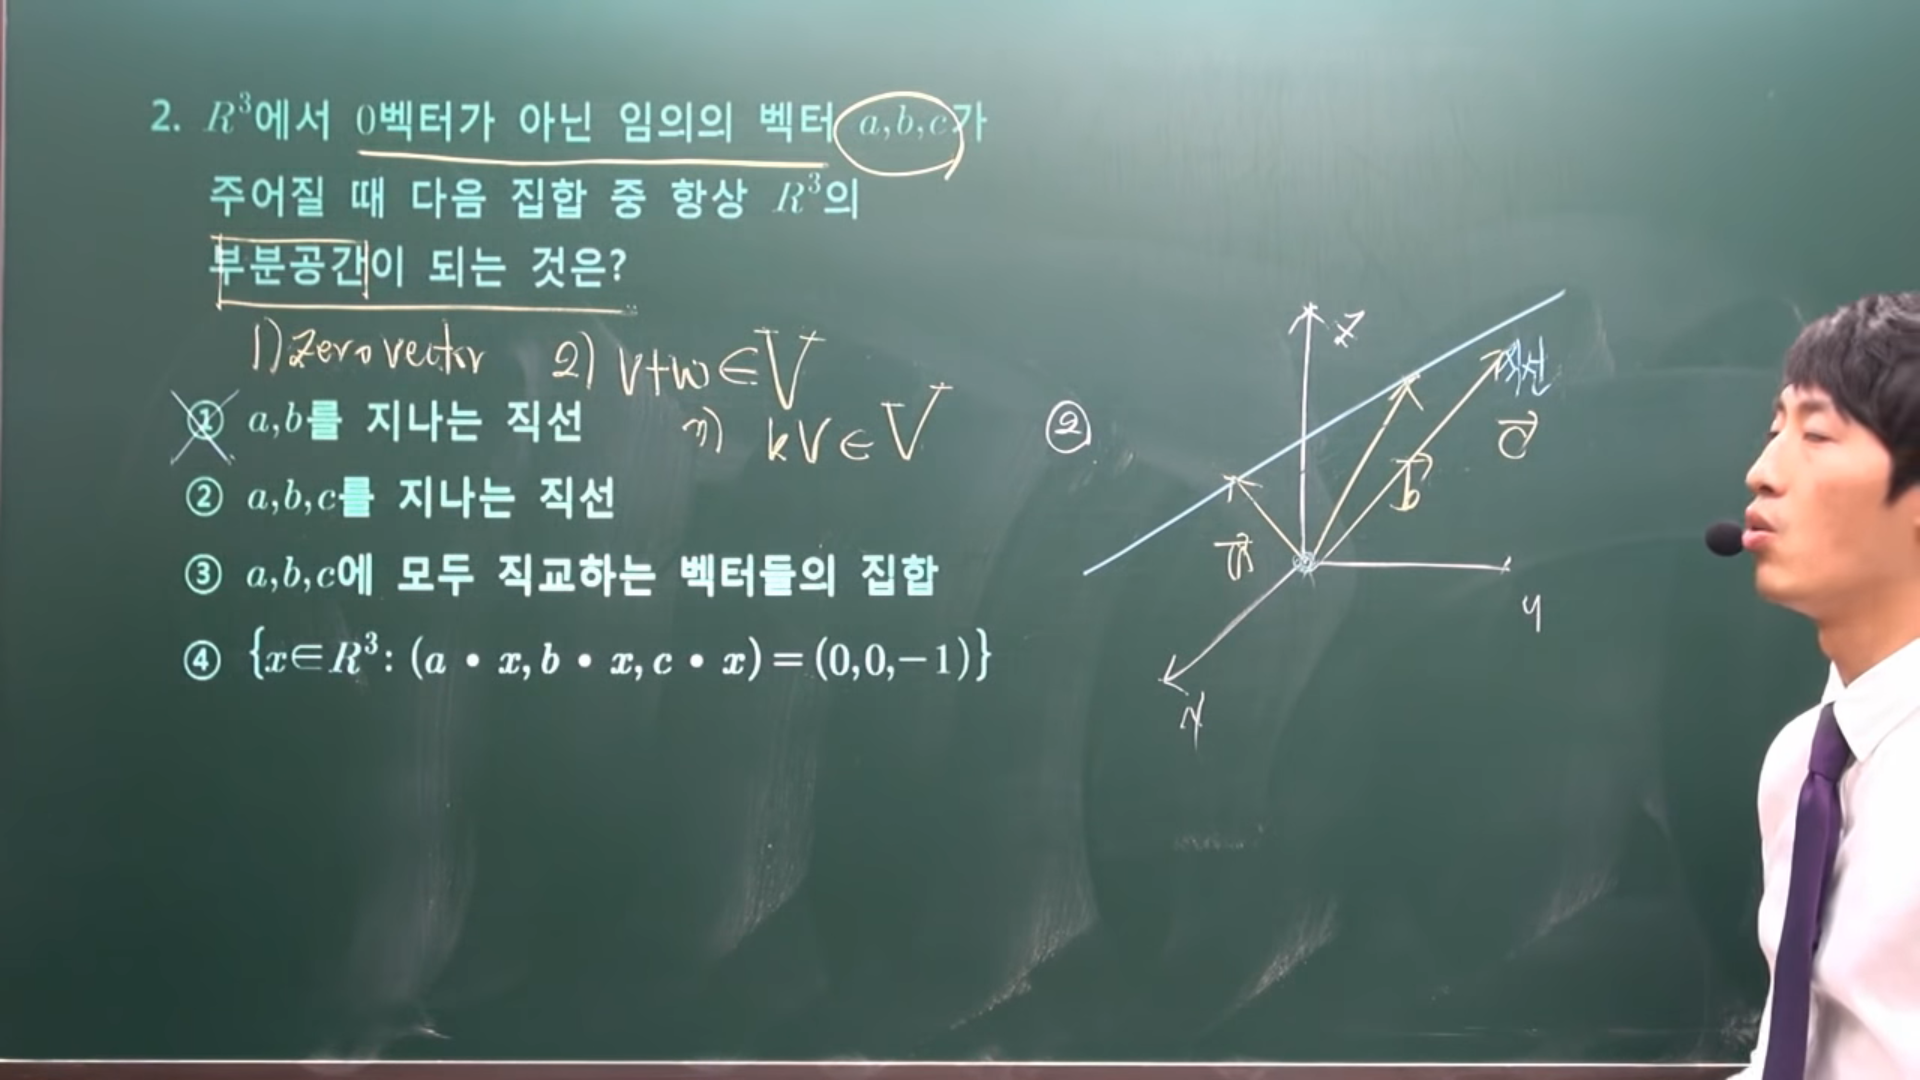 2. R³에서 0벡터가 아닌 임의의 벡터 a,b,c가
주어질 때 다음 집합 중 항상 R³의
부분공간이 되는 것은?
1) Zero vector 2) v+w∈V
kv∈V
① a,b를 지나는 직선
② a,b,c를 지나는 직선
③ a,b,c에 모두 직교하는 벡터들의 집합
④ {x∈R³: (a • x, b • x, c • x) = (0,0,−1)}
②
z
직선
c
b
a
y
x